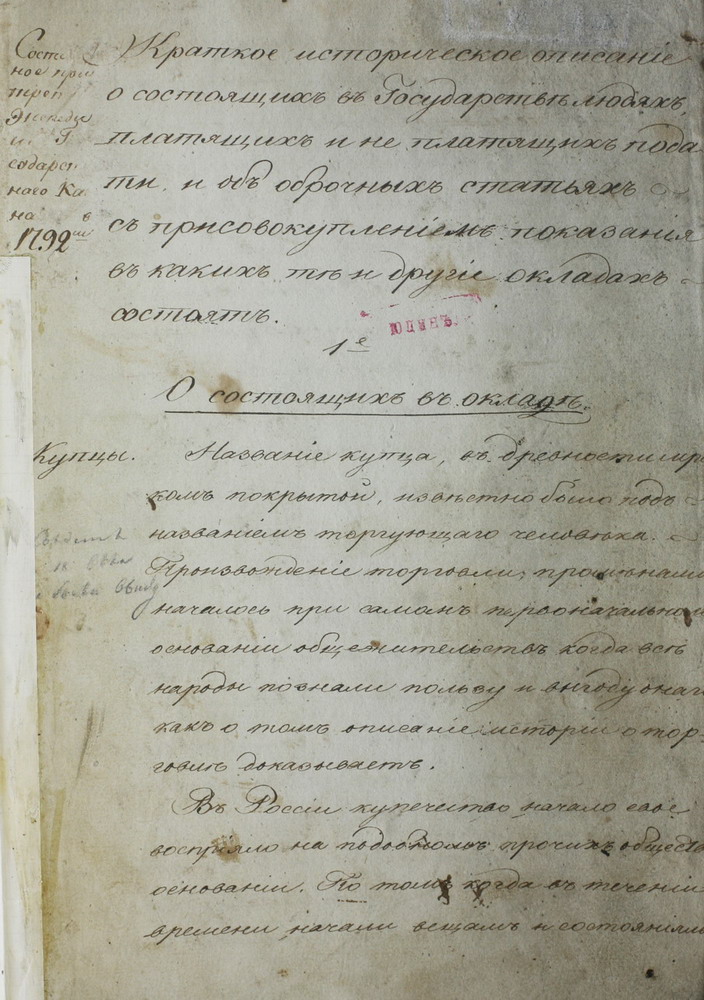 Краткое историческое описаніе
о состоящихъ въ Государствѣ людяхъ,
платящихъ и не платящихъ пода-
ти, и объ оброчныхъ статьяхъ
съ присовокупленіемъ показанія
въ какихъ тѣ и другіе окладахъ
состоятъ.
1е
О состоящихъ въ окладѣ.
Состав
ное при
Экспеди
и Г
сударст
наго Ка
на в
1792м
Купцы.
Названіе купца, въ древности мра
комъ покрытой, извѣстно было подъ
названіемъ торгующаго человѣка.
Произвожденіе торговли, промѣнами
началось при самомъ первоначальном
основаніи общежительствъ когда всѣ
народы познали пользу и выгоду онаго
какъ о томъ описаніе исторіи о тор-
говлѣ доказываетъ.
Въ Россіи купечество начало свое
воспріяло на подобномъ прочихъ обществ
основаніи. По томъ когда въ теченіи
времени начали вещамъ и состояніям